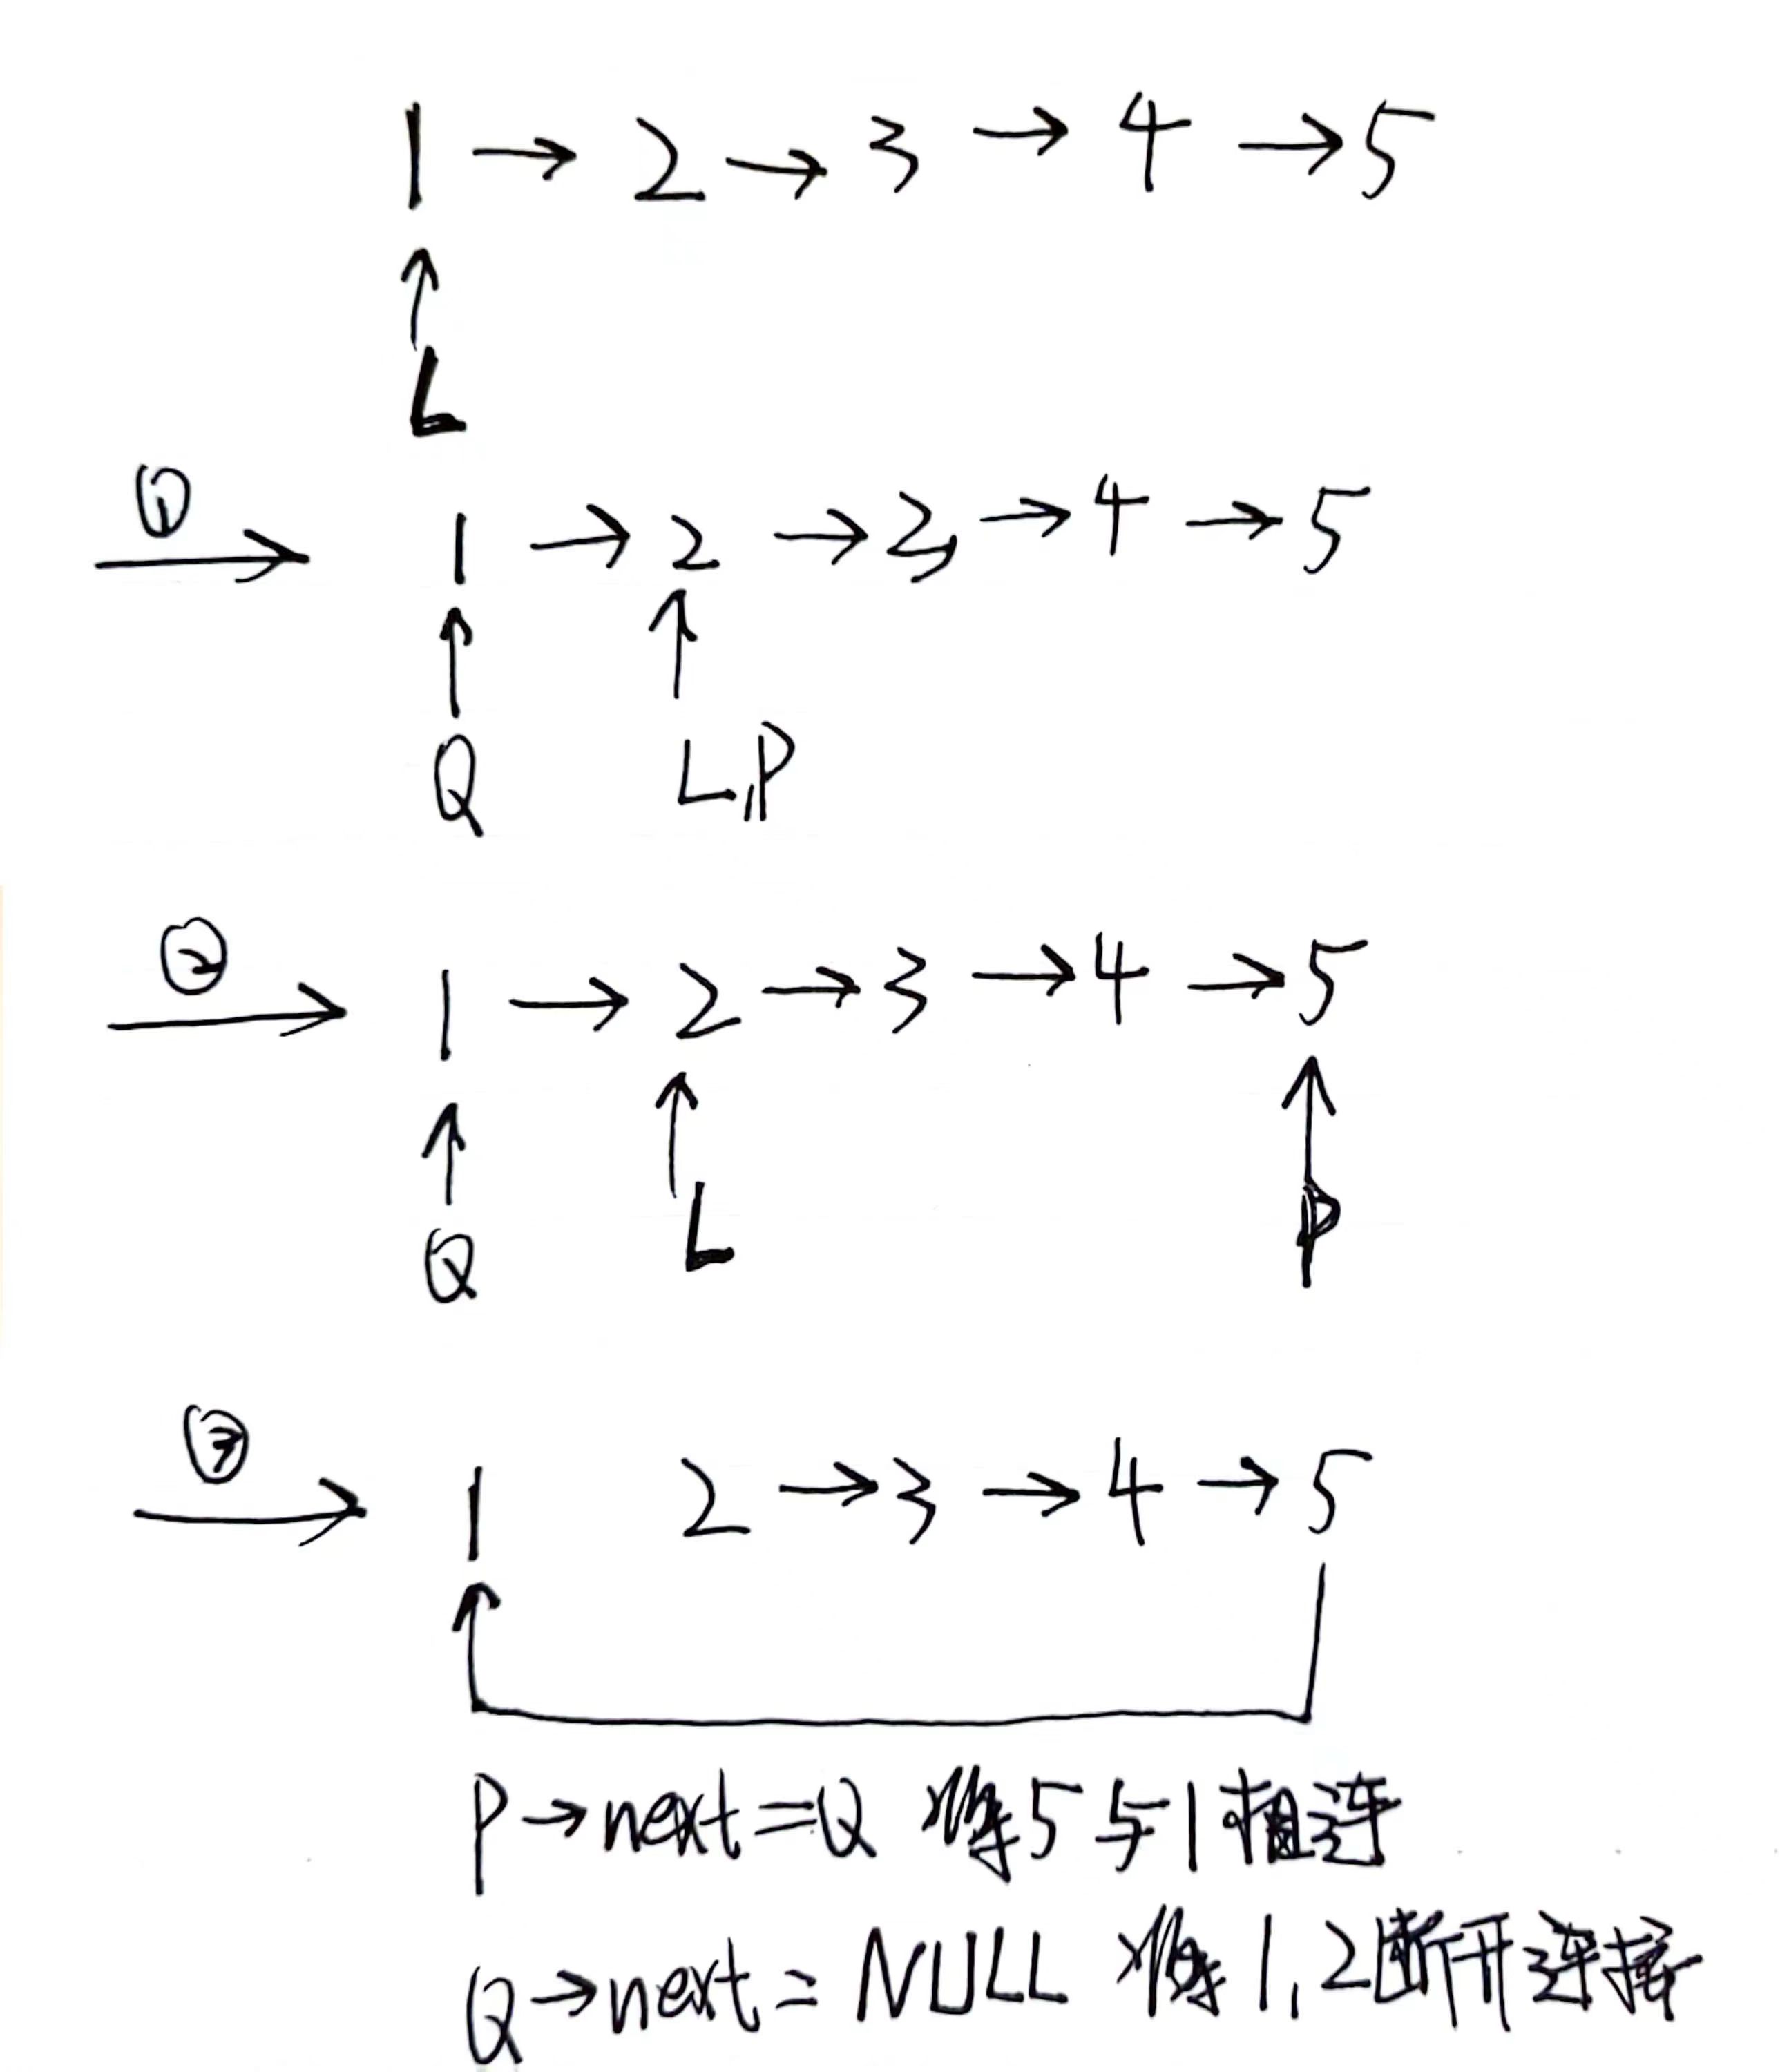 1 → 2 → 3 → 4 → 5
↑
L
① → 1 → 2 → 3 → 4 → 5
↑ ↑
Q L,P
② → 1 → 2 → 3 → 4 → 5
↑ ↑ ↑
Q L P
③ → 1 2 → 3 → 4 → 5
P→next=Q 将5与1相连
Q→next=NULL 将1,2断开连接